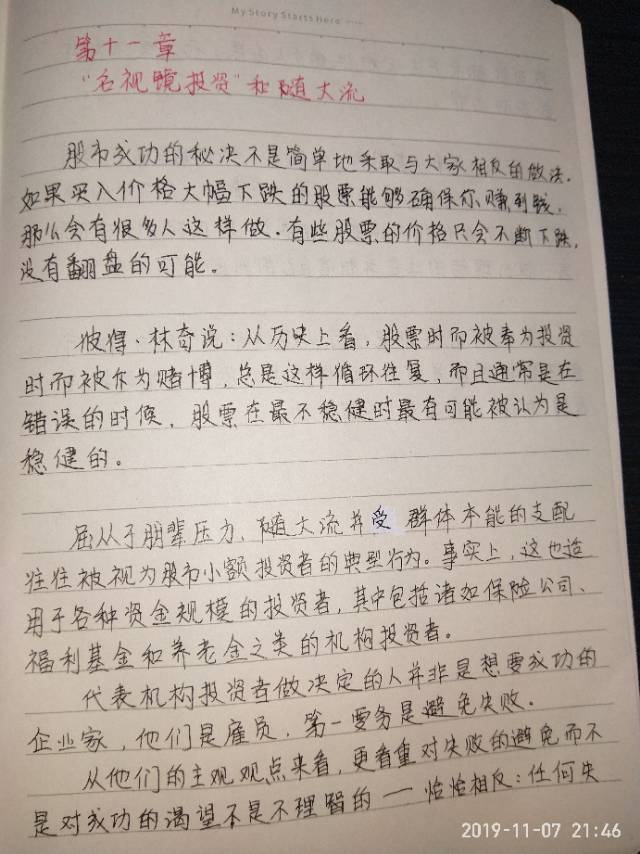 My Story Starts Here
第十一章
“后视镜投资”和随大流
股市成功的秘决不是简单地采取与大家相反的做法.
如果买入价格大幅下跌的股票能够确保你赚到钱,
那么会有很多人这样做.有些股票的价格只会不断下跌,
没有翻盘的可能。
彼得·林奇说:从历史上看,股票时而被奉为投资
时而被作为赌博,总是这样循环往复,而且通常是在
错误的时候,股票在最不稳健时最有可能被认为是
稳健的。
屈从于朋辈压力、随大流并受群体本能的支配
往往被视为股市小额投资者的典型行为。事实上,这也适
用于各种资金规模的投资者,其中包括诸如保险公司、
福利基金和养老金之类的机构投资者。
代表机构投资者做决定的人并非是想要成功的
企业家,他们是雇员,第一要务是避免失败.
从他们的主观观点来看,更看重对失败的避免而不
是对成功的渴望不是不理智的——恰恰相反:任何失
2019-11-07 21:46